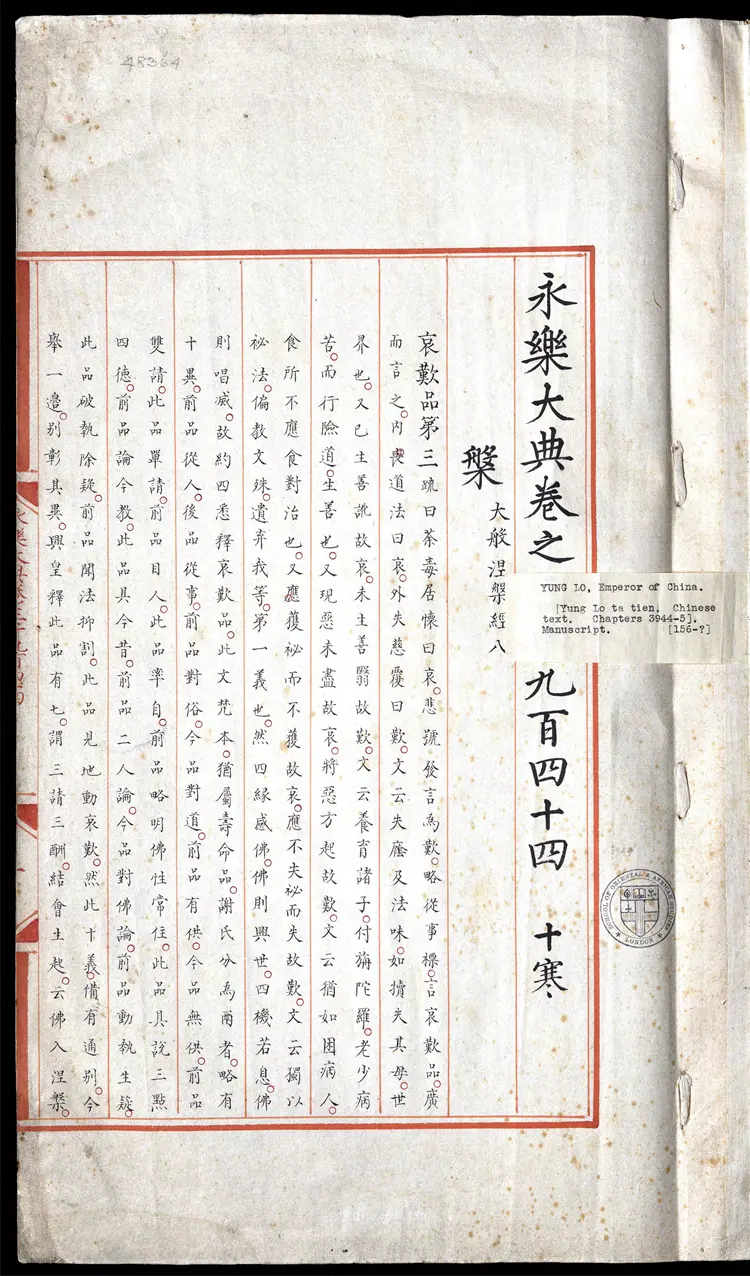 48364
永樂大典卷之
九百四十四 十寒
槃 大般涅槃經八
哀歎品第三疏曰荼毒居懷曰哀。悲號發言為歎。略從事標。言哀歎品。廣
而言之。內喪道法曰哀。外失慈覆曰歎。文云失廕及法味。如犢失其母。世
界也。又已生善訛故哀。未生善翳故歎。文云養育諸子。付旃陀羅。老少病
苦。而行險道。生善也。又現惡未盡故哀。將惡方起故歎。文云猶如困病人。
食所不應食對治也。又應獲祕而不獲故哀。應不失祕而失故歎。文云獨以
祕法。偏教文殊。遺弃我等。第一義也。然四緣感佛。佛則興世。四機若息。佛
則唱滅。故約四悉釋哀歎品。此文梵本。猶屬壽命品。謝氏分為兩者。略有
十異。前品從人。後品從事。前品對俗。今品對道。前品有供。今品無供。前品
雙請。此品單請。前品目人。此品率自。前品略明佛性常住。此品具說三點
四德。前品論今教。此品具今昔。前品二人論。今品對佛論。前品動執生疑。
此品破執除疑。前品聞法抑割。此品見地動哀歎。然此十義。備有通別。今
舉一邊。別彰其異。興皇釋此品有七。謂三請三酬。結會生起。云佛入涅槃。
YUNG LO, Emperor of China.
[Yung Lo ta tien. Chinese
text. Chapters 3944-5].
Manuscript. [156-?]
3944
SCHOOL OF ORIENTAL & AFRICAN STUDIES
LONDON